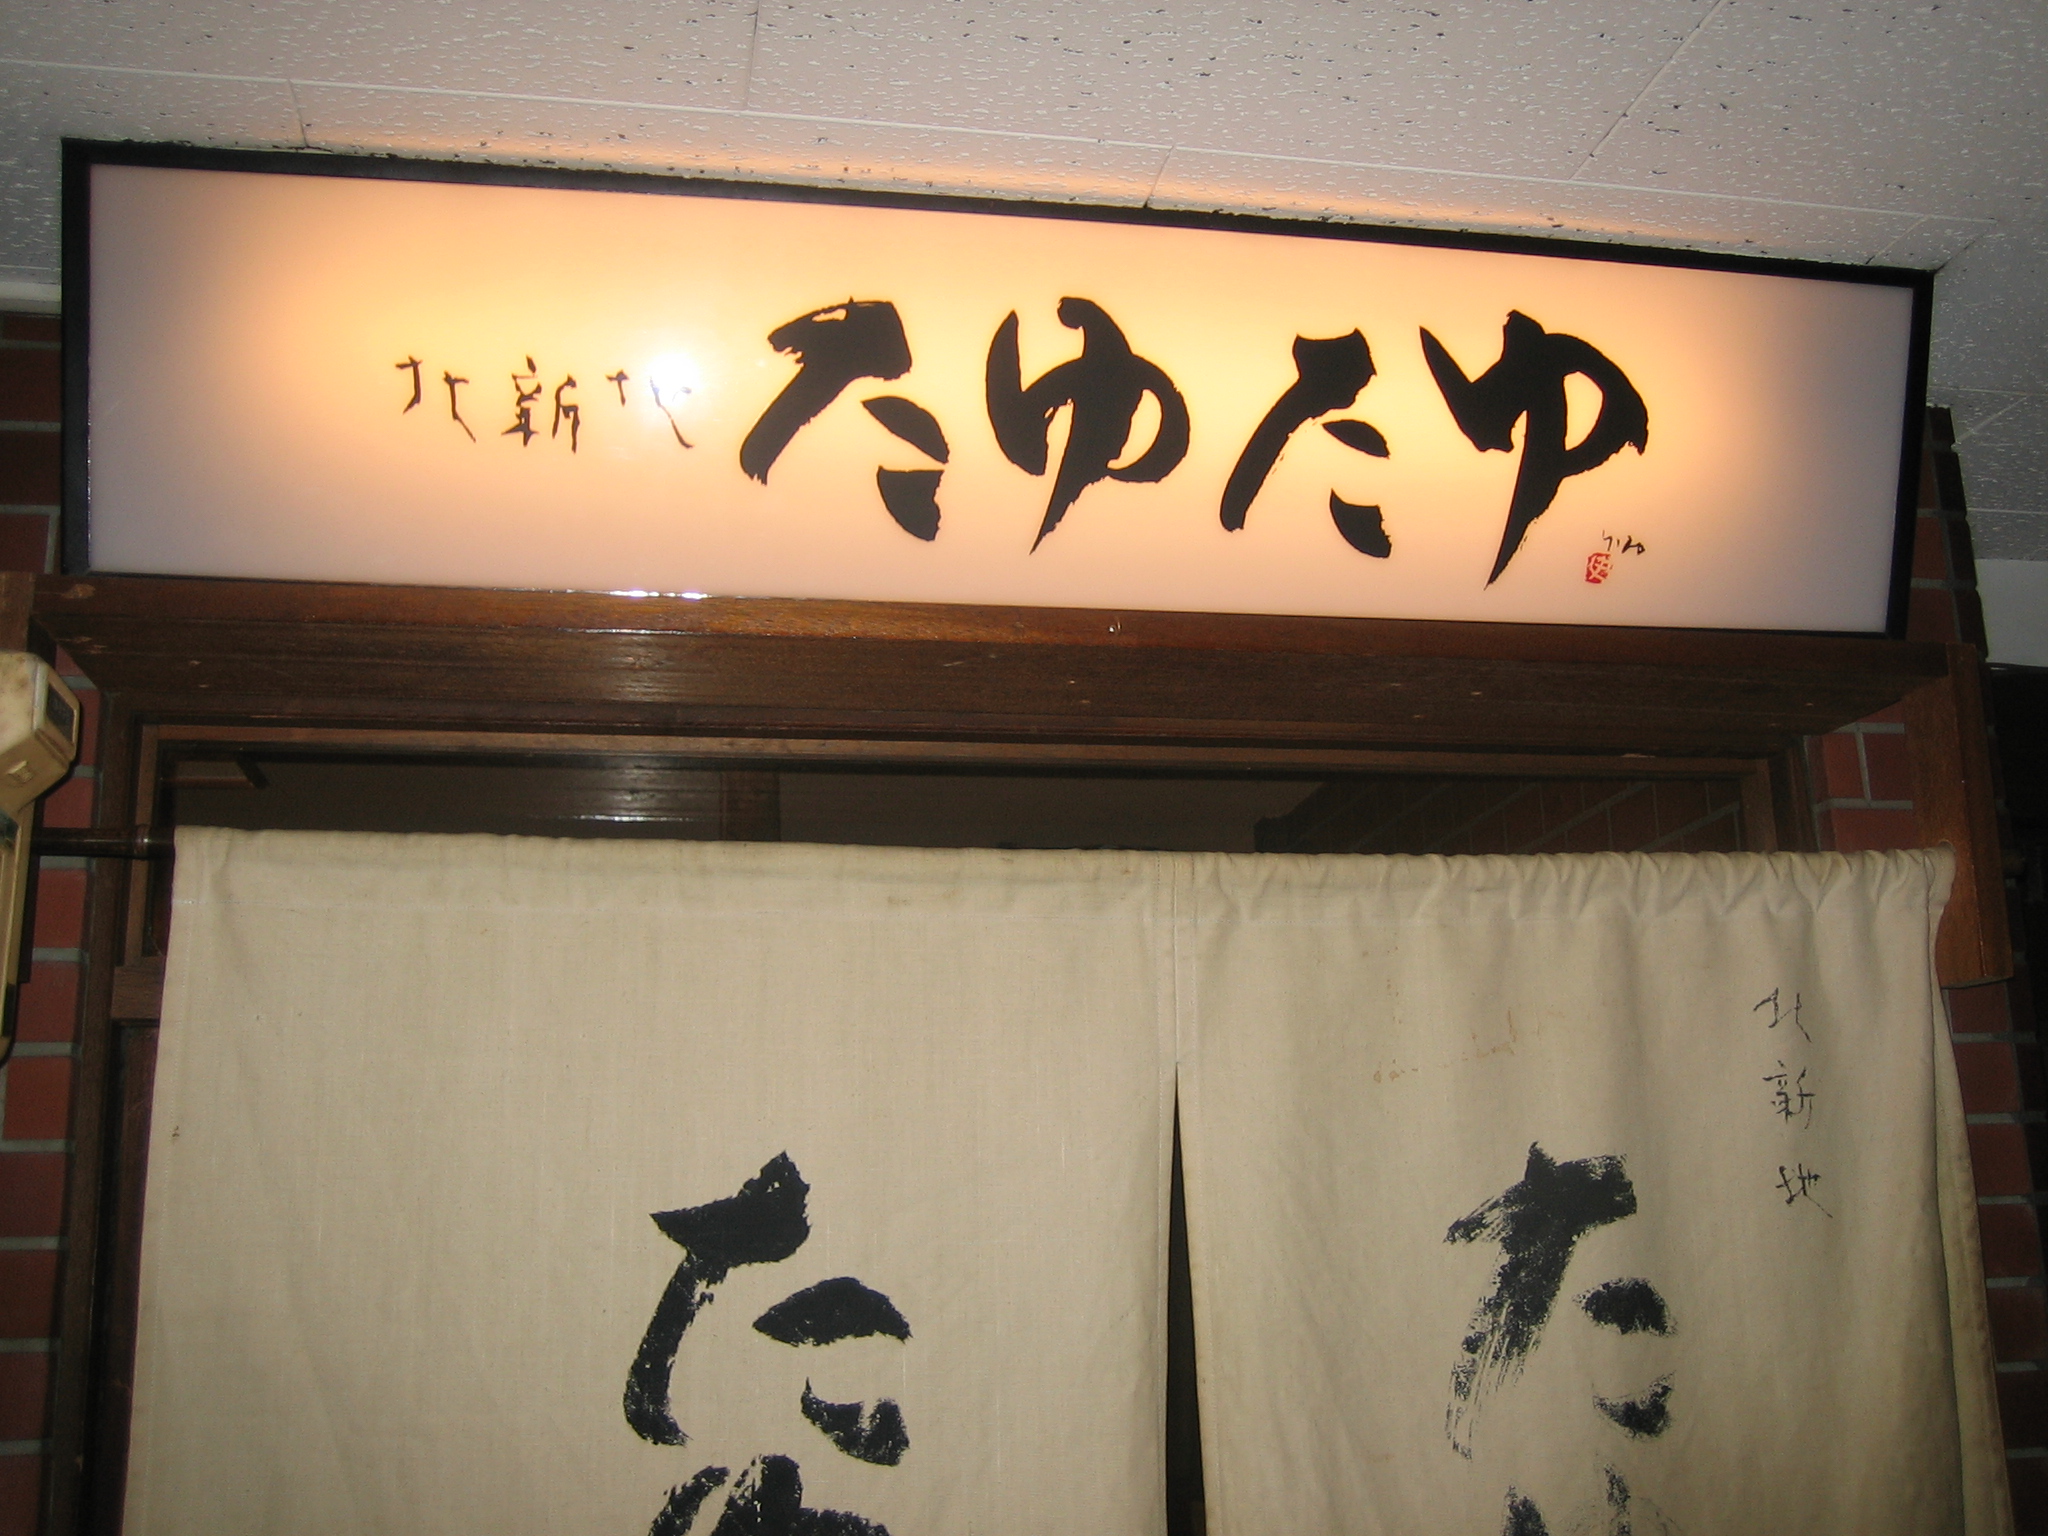 北新地 たゆたゆ
北新地
た
た